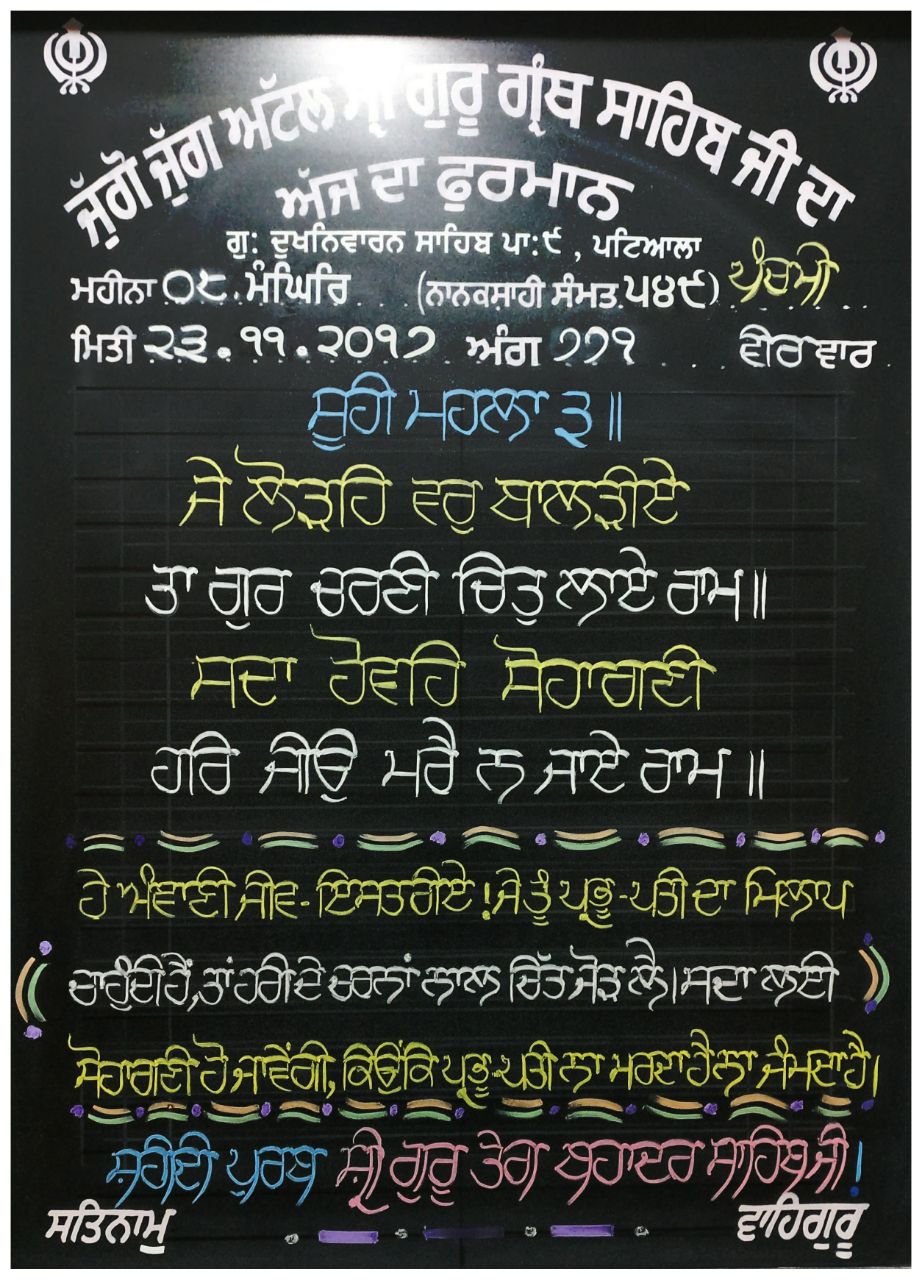 ਜੁੱਗੋ ਜੁੱਗ ਅੱਟਲ ਸ਼੍ਰੀ ਗੁਰੂ ਗ੍ਰੰਥ ਸਾਹਿਬ ਜੀ ਦਾ
ਅੱਜ ਦਾ ਫੁਰਮਾਨ
ਗੁ: ਦੂਖਨਿਵਾਰਨ ਸਾਹਿਬ ਪਾ:੯ , ਪਟਿਆਲਾ
ਮਹੀਨਾ ੦੮ ਮੰਘਿਰਿ (ਨਾਨਕਸ਼ਾਹੀ ਸੰਮਤ ੫੪੯) ਪੰਚਮੀ
ਮਿਤੀ ੨੩.੧੧.੨੦੧੭ ਅੰਗ ੭੭੧ ਵੀਰਵਾਰ
ਸੂਹੀ ਮਹਲਾ ੩॥
ਜੇ ਲੋੜਹਿ ਵਰੁ ਬਾਲੜੀਏ
ਤਾ ਗੁਰ ਚਰਣੀ ਚਿਤੁ ਲਾਏ ਰਾਮ॥
ਸਦਾ ਹੋਵਹਿ ਸੋਹਾਗਣੀ
ਹਰਿ ਜੀਉ ਮਰੈ ਨ ਜਾਏ ਰਾਮ॥
ਹੇ ਅੰਞਾਣੀ ਜੀਵ-ਇਸਤਰੀਏ! ਜੇ ਤੂੰ ਪ੍ਰਭੂ-ਪਤੀ ਦਾ ਮਿਲਾਪ
ਚਾਹੁੰਦੀ ਹੈਂ, ਤਾਂ ਹਰੀ ਦੇ ਚਰਨਾਂ ਨਾਲ ਚਿੱਤ ਜੋੜ ਲੈ। ਸਦਾ ਲਈ
ਸੋਹਾਗਣੀ ਹੋ ਜਾਵੇਂਗੀ, ਕਿਉਂਕਿ ਪ੍ਰਭੂ-ਪਤੀ ਨਾ ਮਰਦਾ ਹੈ ਨਾ ਜੰਮਦਾ ਹੈ।
ਸ਼ਹੀਦੀ ਪੁਰਬ ਸ਼੍ਰੀ ਗੁਰੂ ਤੇਗ ਬਹਾਦਰ ਸਾਹਿਬ ਜੀ!
ਸਤਿਨਾਮੁ ਵਾਹਿਗੁਰੂ